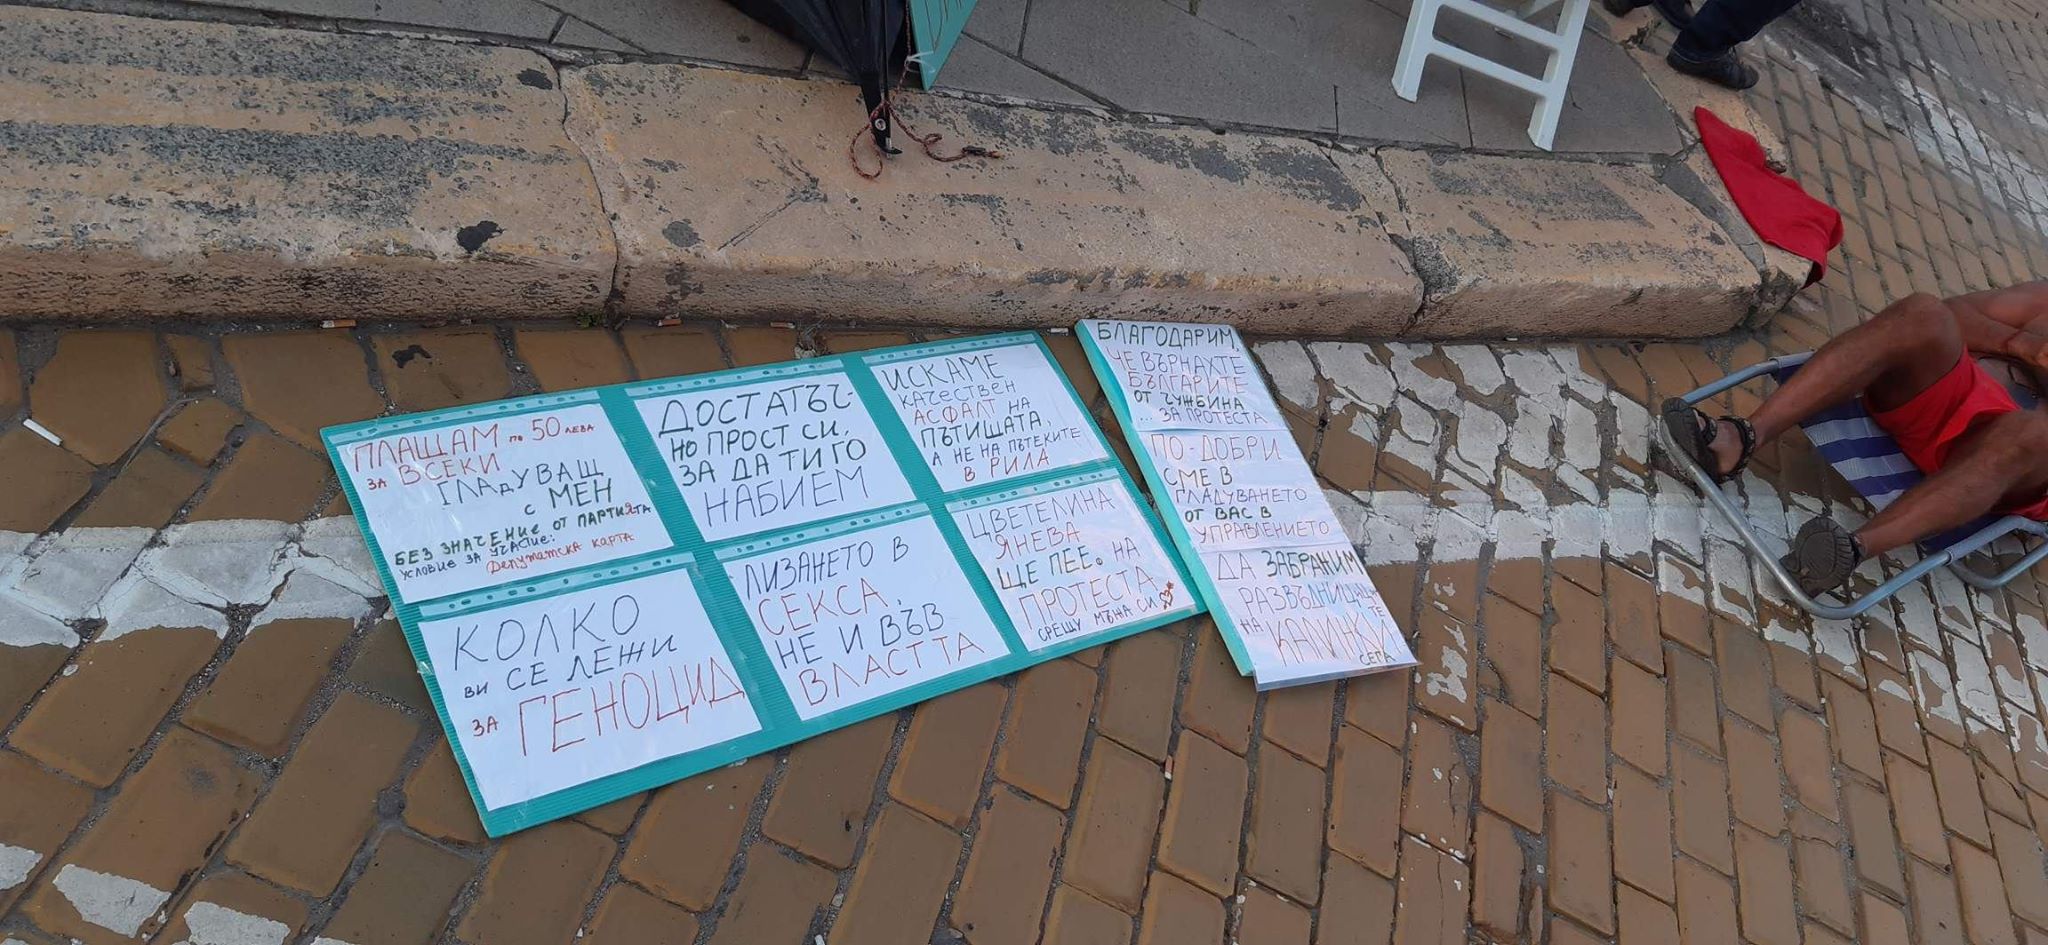 ПЛАЩАМ по 50 ЛЕВА
ЗА ВСЕКИ
ГЛАДУВАЩ
С МЕН
БЕЗ ЗНАЧЕНИЕ ОТ ПАРТИЯТА
УСЛОВИЕ ЗА УЧАСТИЕ:
Депутатска карта
ДОСТАТЪЧ-
НО ПРОСТ СИ,
ЗА ДА ТИ ГО
НАБИЕМ
ИСКАМЕ
КАЧЕСТВЕН
АСФАЛТ НА
ПЪТИЩАТА,
А НЕ НА ПЪТЕКИТЕ
В РИЛА
КОЛКО
ВИ СЕ ЛЕЖИ
ЗА ГЕНОЦИД
ЛИЗАНЕТО В
СЕКСА,
НЕ И ВЪВ
ВЛАСТТА
ЦВЕТЕЛИНА
ЯНЕВА
ЩЕ ПЕЕ НА
ПРОТЕСТА
СРЕЩУ МЪЖА СИ
БЛАГОДАРИМ,
ЧЕ ВЪРНАХТЕ
БЪЛГАРИТЕ
ОТ ЧУЖБИНА
... ЗА ПРОТЕСТА
ПО-ДОБРИ
СМЕ В
ГЛАДУВАНЕТО
ОТ ВАС В
УПРАВЛЕНИЕТО
ДА ЗАБРАНИМ
РАЗВЪДНИЦИТЕ
НА
КАЛИНКИ
СЕГА